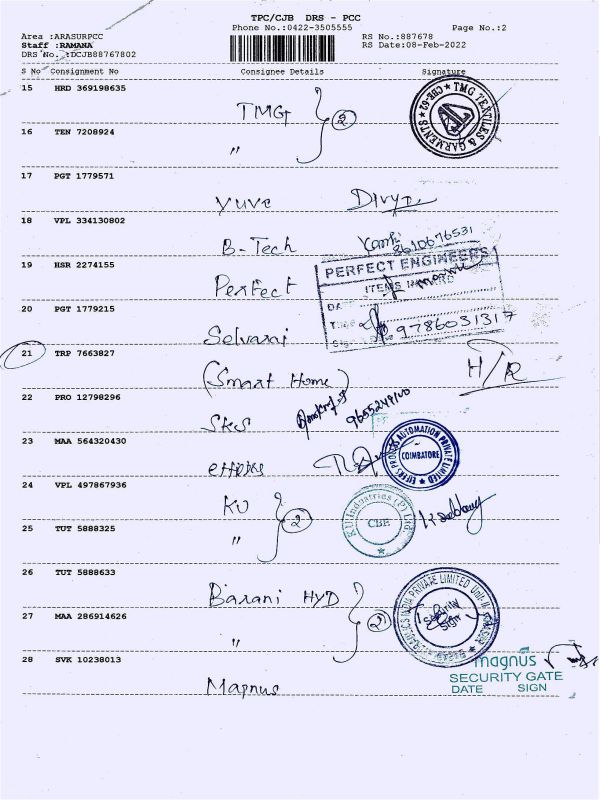 TPC/CJB DRS - PCC
Phone No.:0422-3505555
Page No.:2
Area :ARASURPCC
RS No.:887678
Staff :RAMANA
RS Date:08-Feb-2022
DRS No. :DCJB88767802
S No Consignment No Consignee Details Signature
15 HRD 369198635
TMG
TMG TEXTILES & GARMENTS
CBE-62
16 TEN 7208924
"
2
17 PGT 1779571
Yuva
18 VPL 334130802
B-Tech
8610676531
19 HSR 2274155
Perfect
PERFECT ENGINEERS
ITEMS INWARD
20 PGT 1779215
Selvarani
9786031317
21 TRP 7663827
(Smart Home)
H/R
22 PRO 12798296
SKS
23 MAA 564320430
EFFPRO PROCESS AUTOMATION PRIVATE LIMITED
COIMBATORE
24 VPL 497867936
KU
KU Industries (P) Ltd.
CBE
25 TUT 5888325
"
2
26 TUT 5888633
Barani HYD
27 MAA 286914626
"
2
INDIA PRIVATE LIMITED Unit-III
Security
Sign
28 SVK 10238013
Magnus
magnus
SECURITY GATE
DATE SIGN